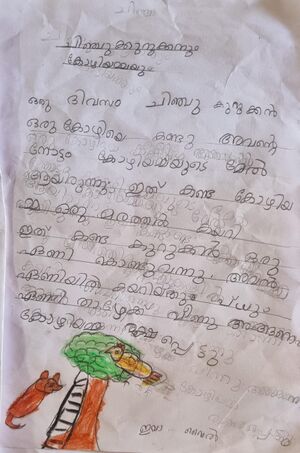 ചിഞ്ചുക്കുറുക്കനും
കോഴിയമ്മയും
ഒരു ദിവസം ചിഞ്ചു കുറുക്കൻ
ഒരു കോഴിയെ കണ്ടു അവന്റെ
നോട്ടം കോഴിയമ്മയുടെ മേൽ
ആയിരുന്നു ഇത് കണ്ട കോഴിയ
മ്മ ഒരു മരത്തിൽ കയറി
ഇത് കണ്ട കുറുക്കൻ ഒരു
ഏണി കൊണ്ടുവന്നു. അവൻ
ഏണിയിൽ കയറിയതും
ഏണി താഴേക്ക് വീണു അങ്ങനെ
കോഴിയമ്മ രക്ഷപ്പെട്ടു
ഇവാ